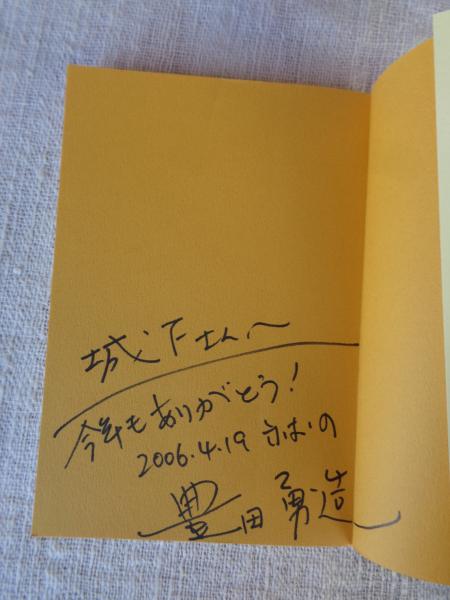 城下さんへ
今年もありがとう!
2006.4.19
豊田勇造